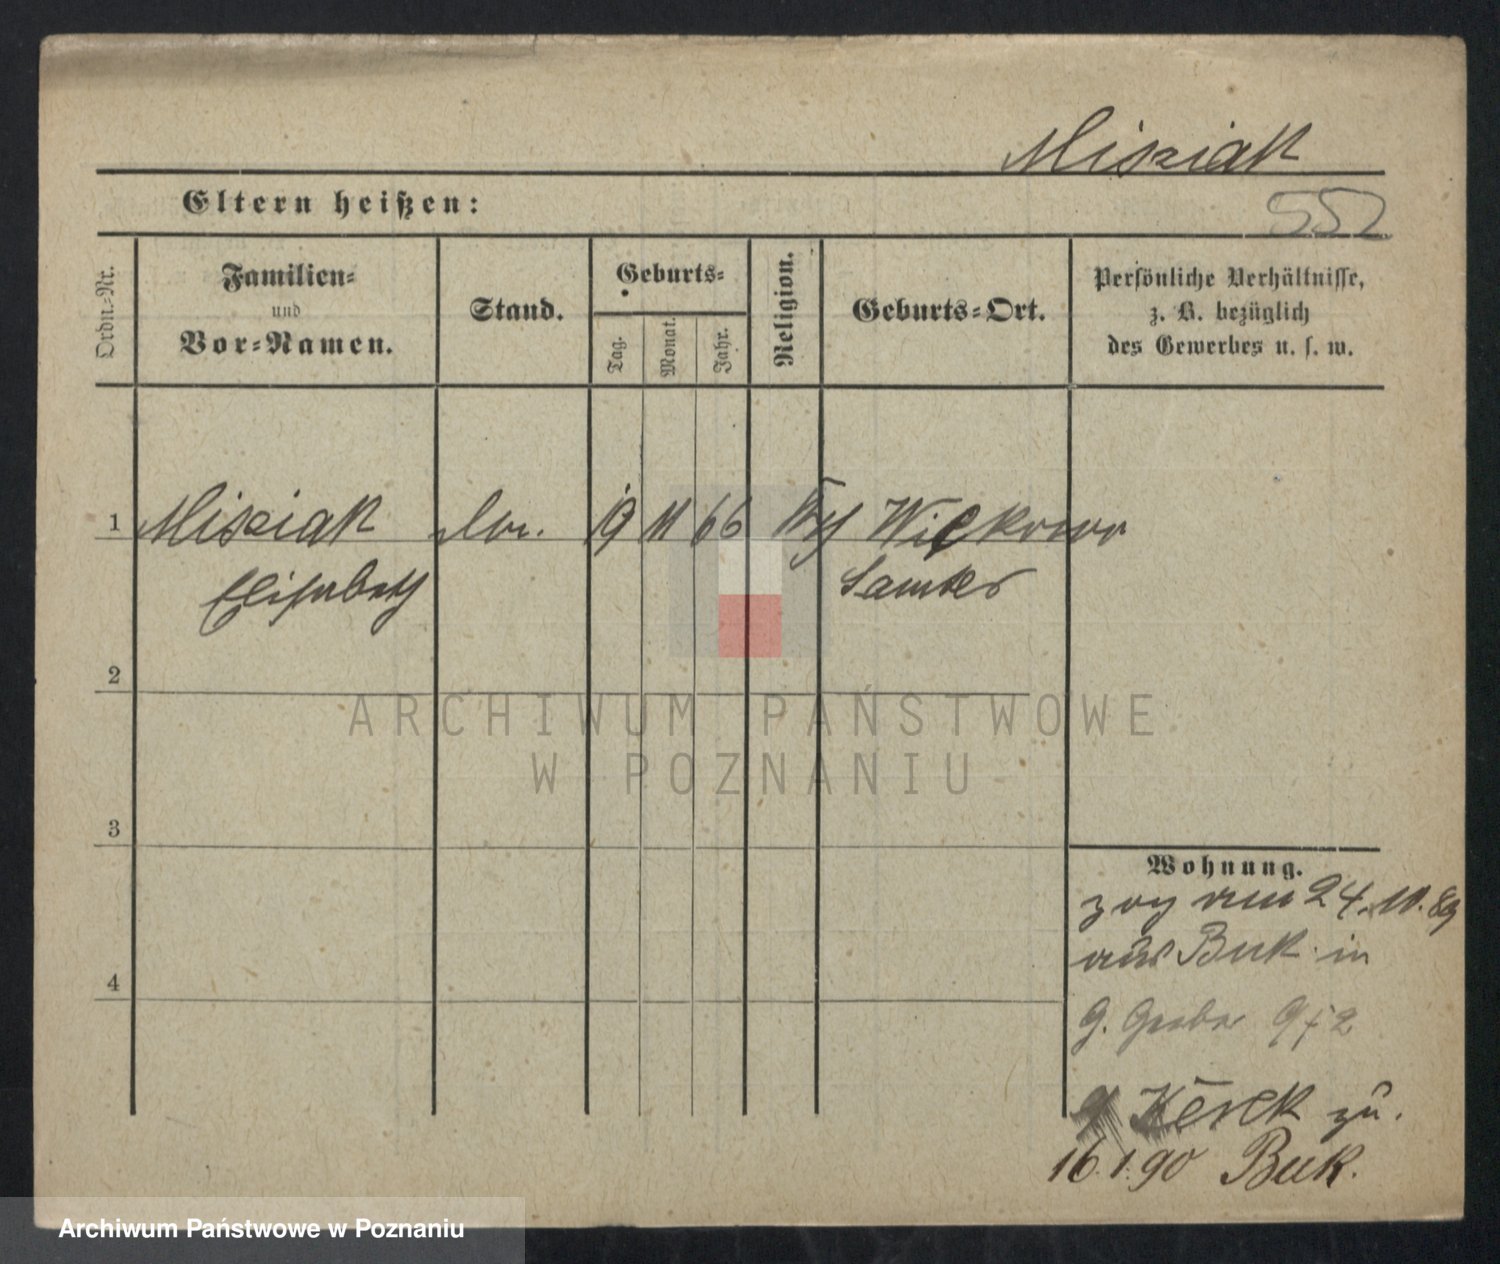 Misziak
Eltern heißen:
552
Ordn.-Nr.
Familien-
und
Vor-Namen.
Stand.
Geburts-
Tag.
Monat.
Jahr.
Religion.
Geburts-Ort.
Persönliche Verhältnisse,
z. B. bezüglich
des Gewerbes u. s. w.
1 Misziak 19 11 66 Wilkowo
Elisabeth Samter
2
ARCHIWUM PAŃSTWOWE
W POZNANIU
3
Wohnung.
zog am 24. 10. 89
aus Buk in
4
G. Gerber 9/2
zu.
16.1.90 Buk.
Archiwum Państwowe w Poznaniu